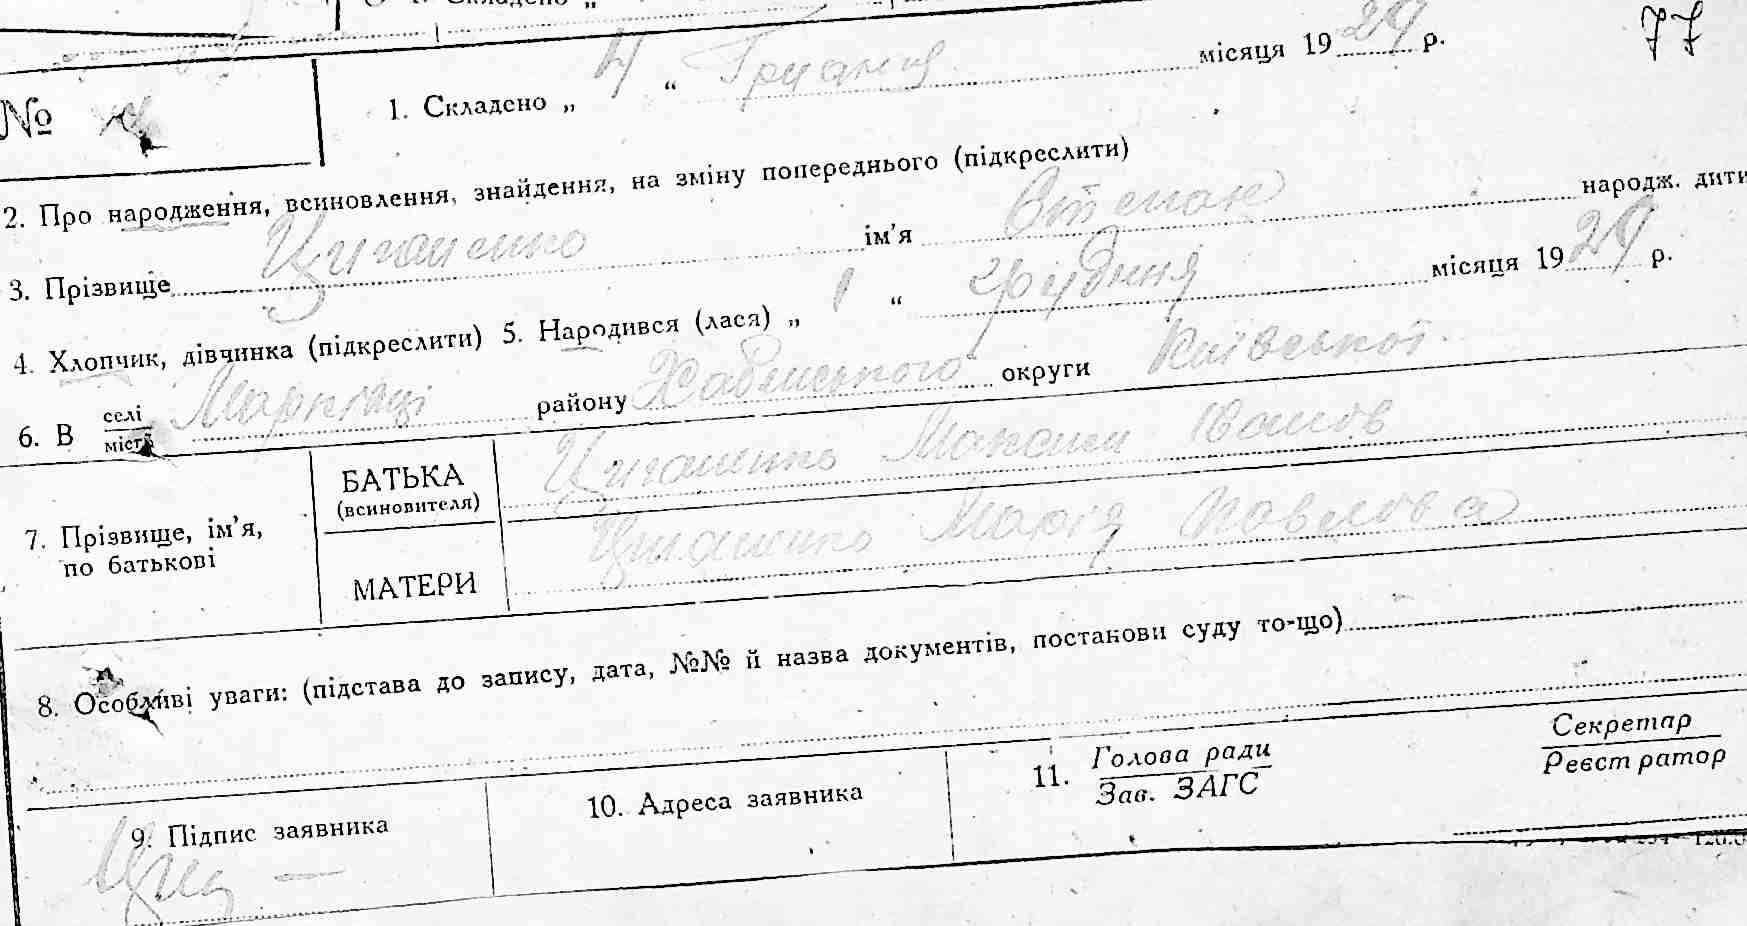 77
1. Складено „ 4 “ Грудня місяця 1929 р.
№
2. Про народження, всиновлення, знайдення, на зміну попереднього (підкреслити)
3. Прізвище Циганенко ім’я Степан народж. дити
4. Хлопчик, дівчинка (підкреслити) 5. Народився (лася) „ 1 “ грудння місяця 1929 р.
6. В селі/місті району Хабенського округи Київської
7. Прізвище, ім’я, по батькові
БАТЬКА (всиновителя) Циганенко Максим Іванов
МАТЕРИ Циганенко Марія Павлова
8. Особливі уваги: (підстава до запису, дата, №№ й назва документів, постанови суду то-що)
9. Підпис заявника
10. Адреса заявника
11. Голова ради
Зав. ЗАГС
Секретар
Реєстратор